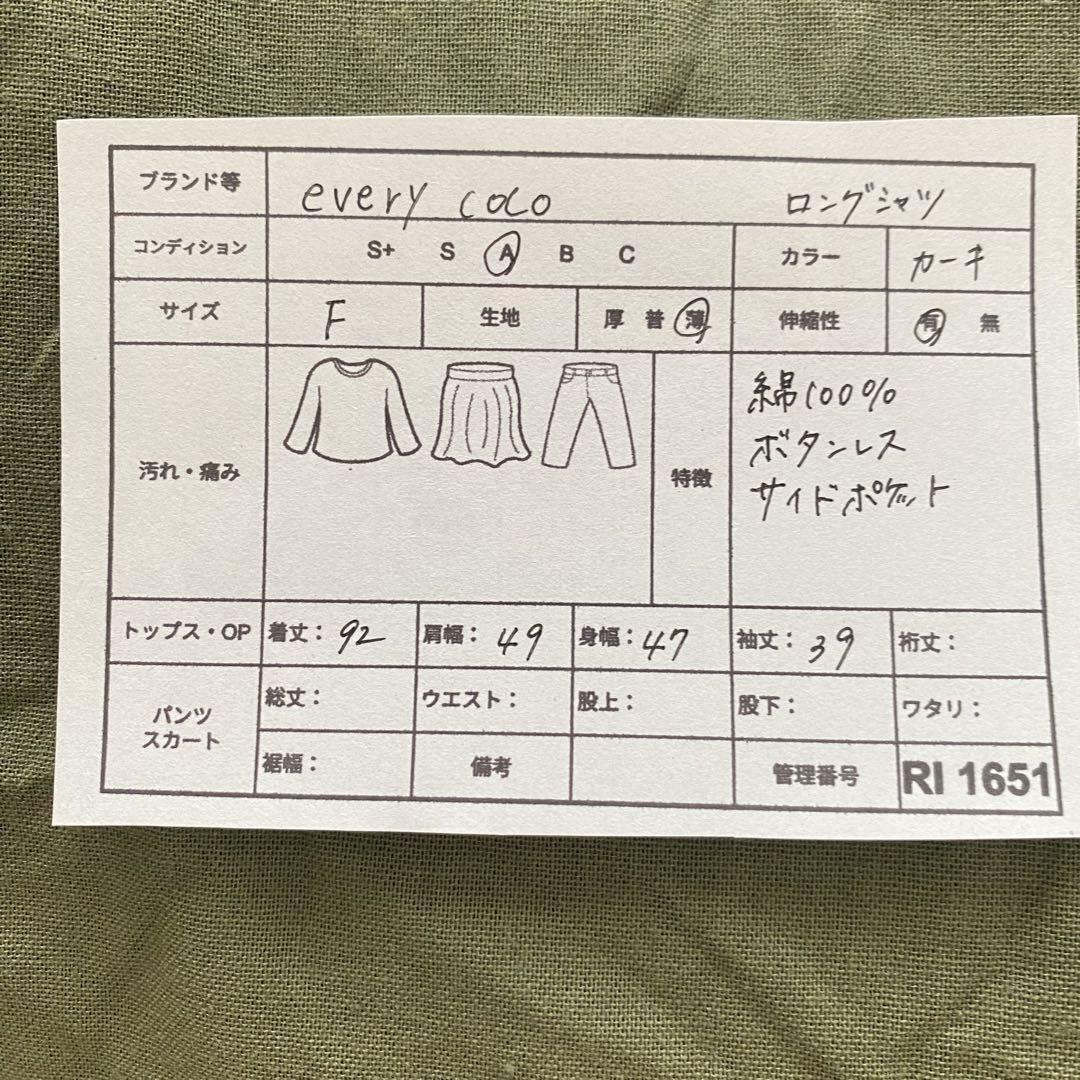 ブランド等 every coco ロングシャツ
コンディション S+ S A B C カラー カーキ
サイズ F 生地 厚 普 薄 伸縮性 有 無
汚れ・痛み 特徴 綿100%
ボタンレス
サイドポケット
トップス・OP 着丈：92 肩幅：49 身幅：47 袖丈：39 裄丈：
パンツ
スカート
総丈： ウエスト： 股上： 股下： ワタリ：
裾幅： 備考 管理番号 RI 1651